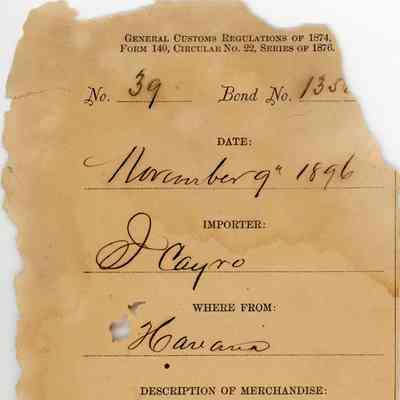 GENERAL CUSTOMS REGULATIONS OF 1874.
FORM 140, CIRCULAR NO. 22, SERIES OF 1876.
No. 39 Bond No. 135
DATE:
November 9" 1896
IMPORTER:
J Cayro
WHERE FROM:
Havana
DESCRIPTION OF MERCHANDISE: